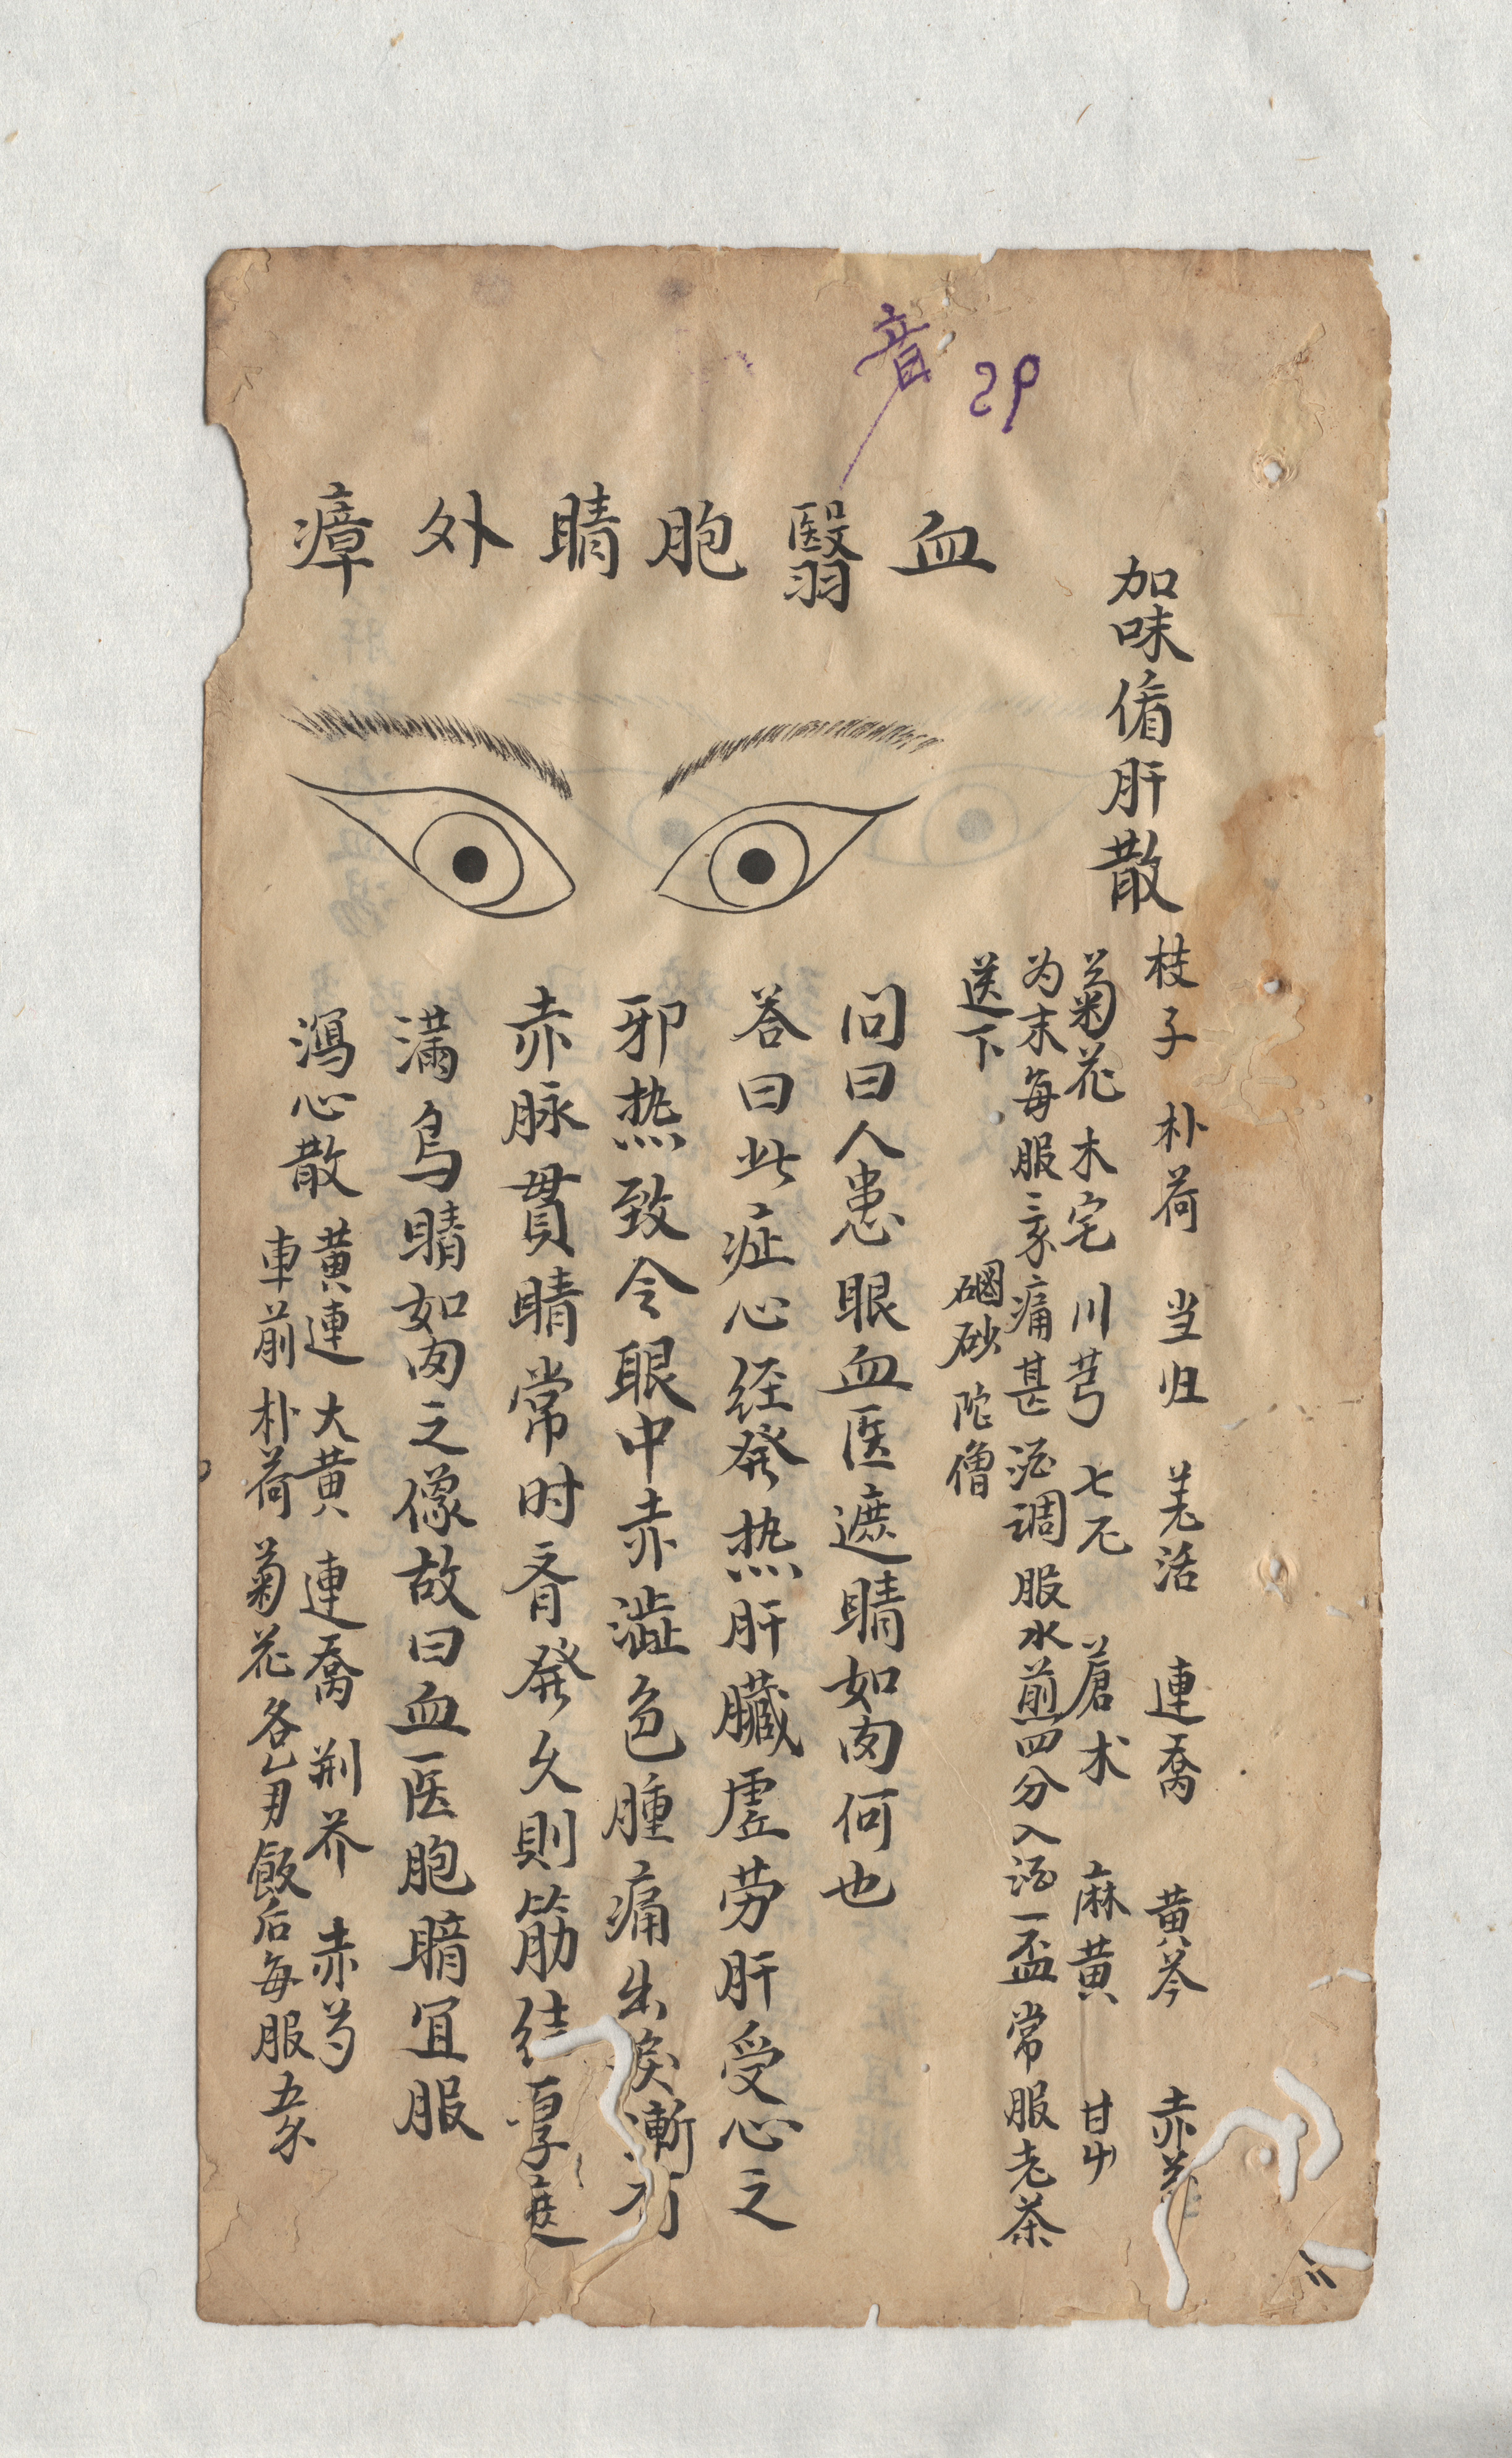 音
29
加味脩肝散
枝子 朴荷 当归 羌活 連喬 黄芩 赤
菊花 木宅 川芎 七 蒼术 麻黄 甘
为末每服三痛甚酒调服水煎四分入酒一盃常服老茶
送下 硇砂 陀僧
血瞖胞睛外瘴
问曰人患眼血医遮睛如肉何也
答曰此症心经發热肝臟虚劳肝受心之
邪热致令眼中赤澁色腫痛出淚漸有
赤脉貫睛常时痒發久則筋结厚遮
满烏睛如肉之像故曰血医胞睛宜服
瀉心散 黄連 大黄 連喬 荆芥 赤芍
車前 朴荷 菊花 各 飯后每服五